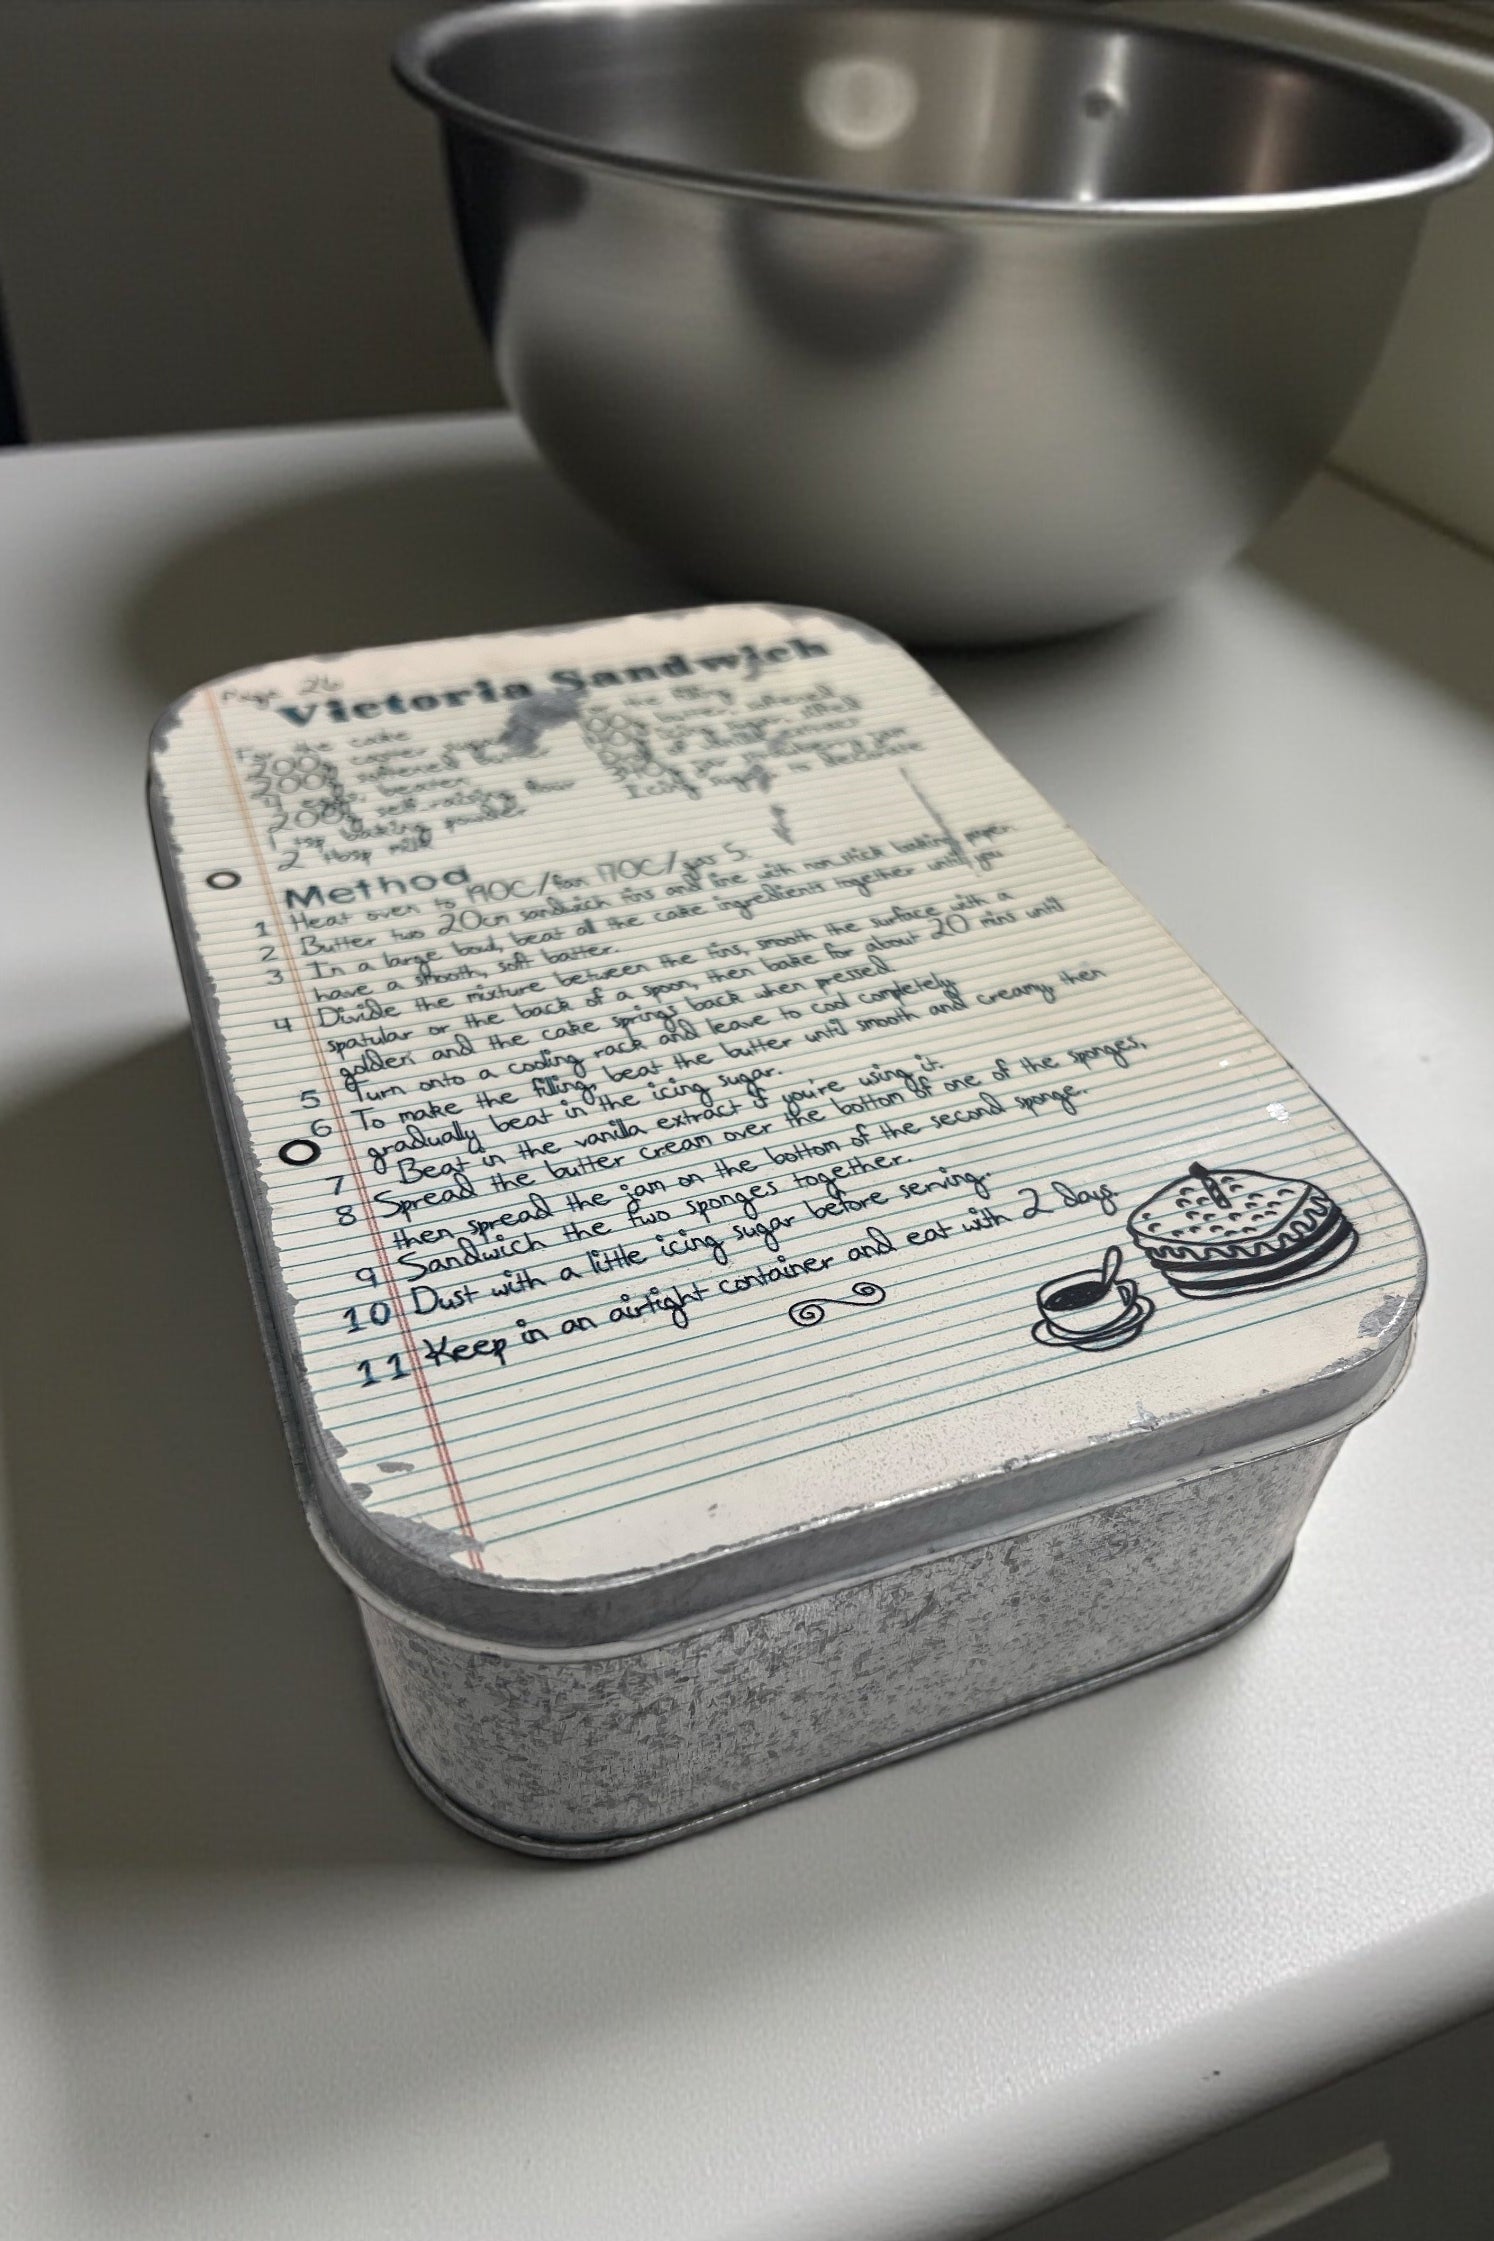 Page 26
Victoria Sandwich
For the cake
200g caster sugar
200g softened butter
4 eggs, beaten
200g self-raising flour
1 tsp baking powder
2 tbsp milk
the filling
100g butter, softened
icing sugar, sifted
340g
Icing sugar to decorate
Method
1 Heat oven to 190C/fan 170C/gas 5.
2 Butter two 20cm sandwich tins and line with non-stick baking paper.
3 In a large bowl, beat all the cake ingredients together until you
have a smooth, soft batter.
4 Divide the mixture between the tins, smooth the surface with a
spatular or the back of a spoon, then bake for about 20 mins until
golden and the cake springs back when pressed.
5 Turn onto a cooling rack and leave to cool completely.
6 To make the filling, beat the butter until smooth and creamy, then
gradually beat in the icing sugar.
7 Beat in the vanilla extract if you're using it.
8 Spread the butter cream over the bottom of one of the sponges,
then spread the jam on the bottom of the second sponge.
9 Sandwich the two sponges together.
10 Dust with a little icing sugar before serving.
11 Keep in an airtight container and eat with 2 days.